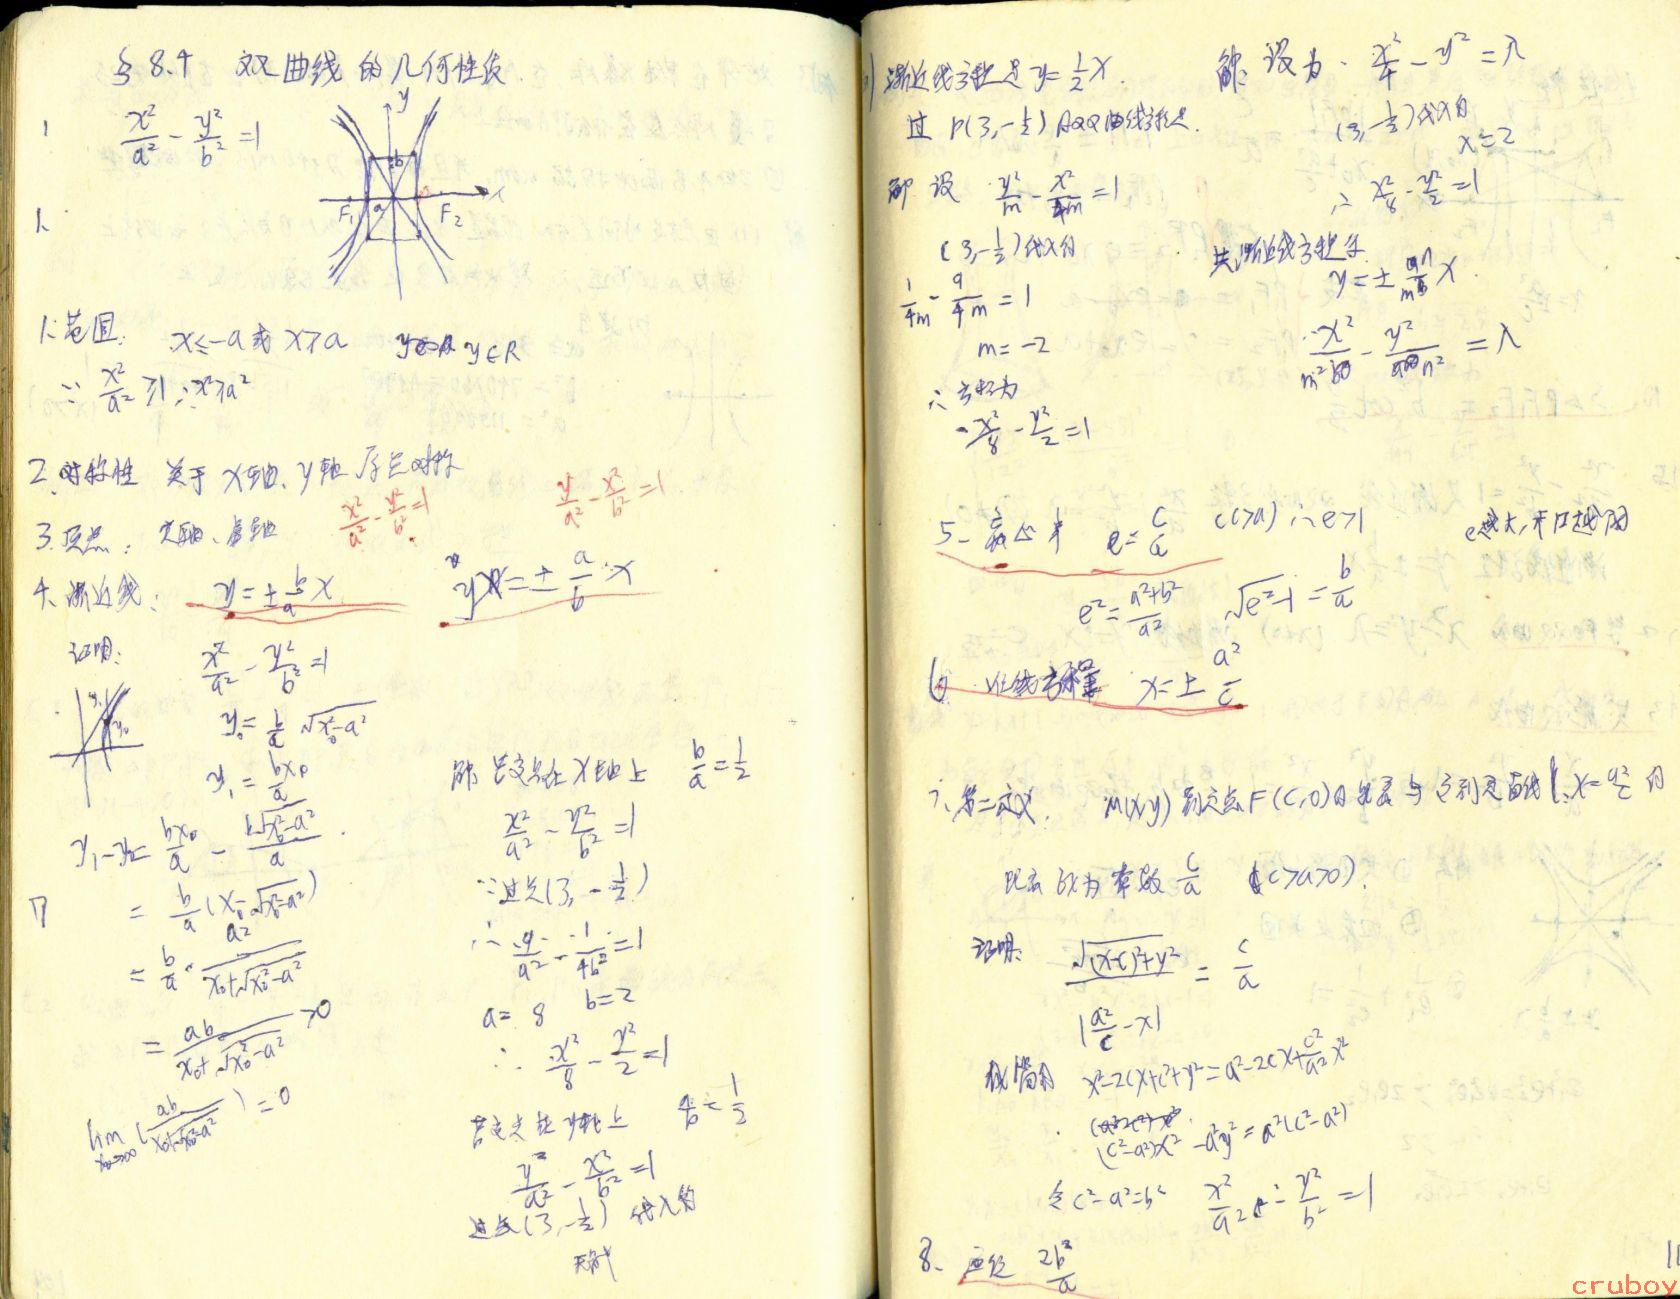 §8.4 双曲线的几何性质
x²/a² - y²/b² = 1
y
b
x
F₁ a F₂
1. 范围: x≤-a或x≥a y∈R
∵ x²/a² ≥1 ∴x²≥a²
2. 对称性 关于x轴、y轴 原点对称
x²/a² - y²/b² = 1 y²/a² - x²/b² = 1
3. 顶点: 实轴、虚轴
4. 渐近线: y=±b/a x y=±a/b x
证明: x²/a² - y²/b² = 1
y₀= b/a √(x₀²-a²)
y₁= bx₀/a
y₁-y₀= bx₀/a - b√(x₀²-a²)/a
= b/a (x₀-√(x₀²-a²))
= b/a · a²/(x₀+√(x₀²-a²))
= ab/(x₀+√(x₀²-a²)) >0
lim x₀→∞ (ab/(x₀+√(x₀²-a²))) =0
解: 若交点在x轴上 b/a = 1/2
x²/a² - y²/b² = 1
∵过点(3, -1/2)
∴ 9/a² - 1/4b² = 1
a= 8 b=2
∴ x²/8 - y²/2 = 1
若交点在y轴上 a/b = 1/2
y²/a² - x²/b² = 1
过点(3, -1/2) 代入得
无解
渐近线方程是 y= 1/2 x.
过 P(3, -1/2) 的双曲线方程是.
解 设 y²/m - x²/4m = 1
(3, -1/2)代入得
1/4m - 9/4m = 1
m= -2
∴方程为
x²/8 - y²/2 = 1
解: 设为 x²/4 - y² = λ
(3, -1/2)代入得
λ=2
∴ x²/8 - y²/2 = 1
共渐近线方程
y=± n/m x.
x²/m² - y²/n² = λ
5. 离心率 e= c/a c(>a) ∴e>1 e越大, 开口越阔
e²= (a²+b²)/a² √(e²-1) = b/a
6. 准线方程 x=± a²/c
7. 第二定义. M(x,y) 到定点F(c,0)的距离与它到定直线l: x= a²/c 的
距离的比为常数 c/a (c>a>0).
证明: √((x-c)²+y²) / |a²/c - x| = c/a
化简得 x²-2cx+c²+y²=a²-2cx+ c²/a² x²
(c²-a²)x² -a²y²=a²(c²-a²)
令c²-a²=b² x²/a² - y²/b² = 1
8. 通径 2b²/a
cruboy